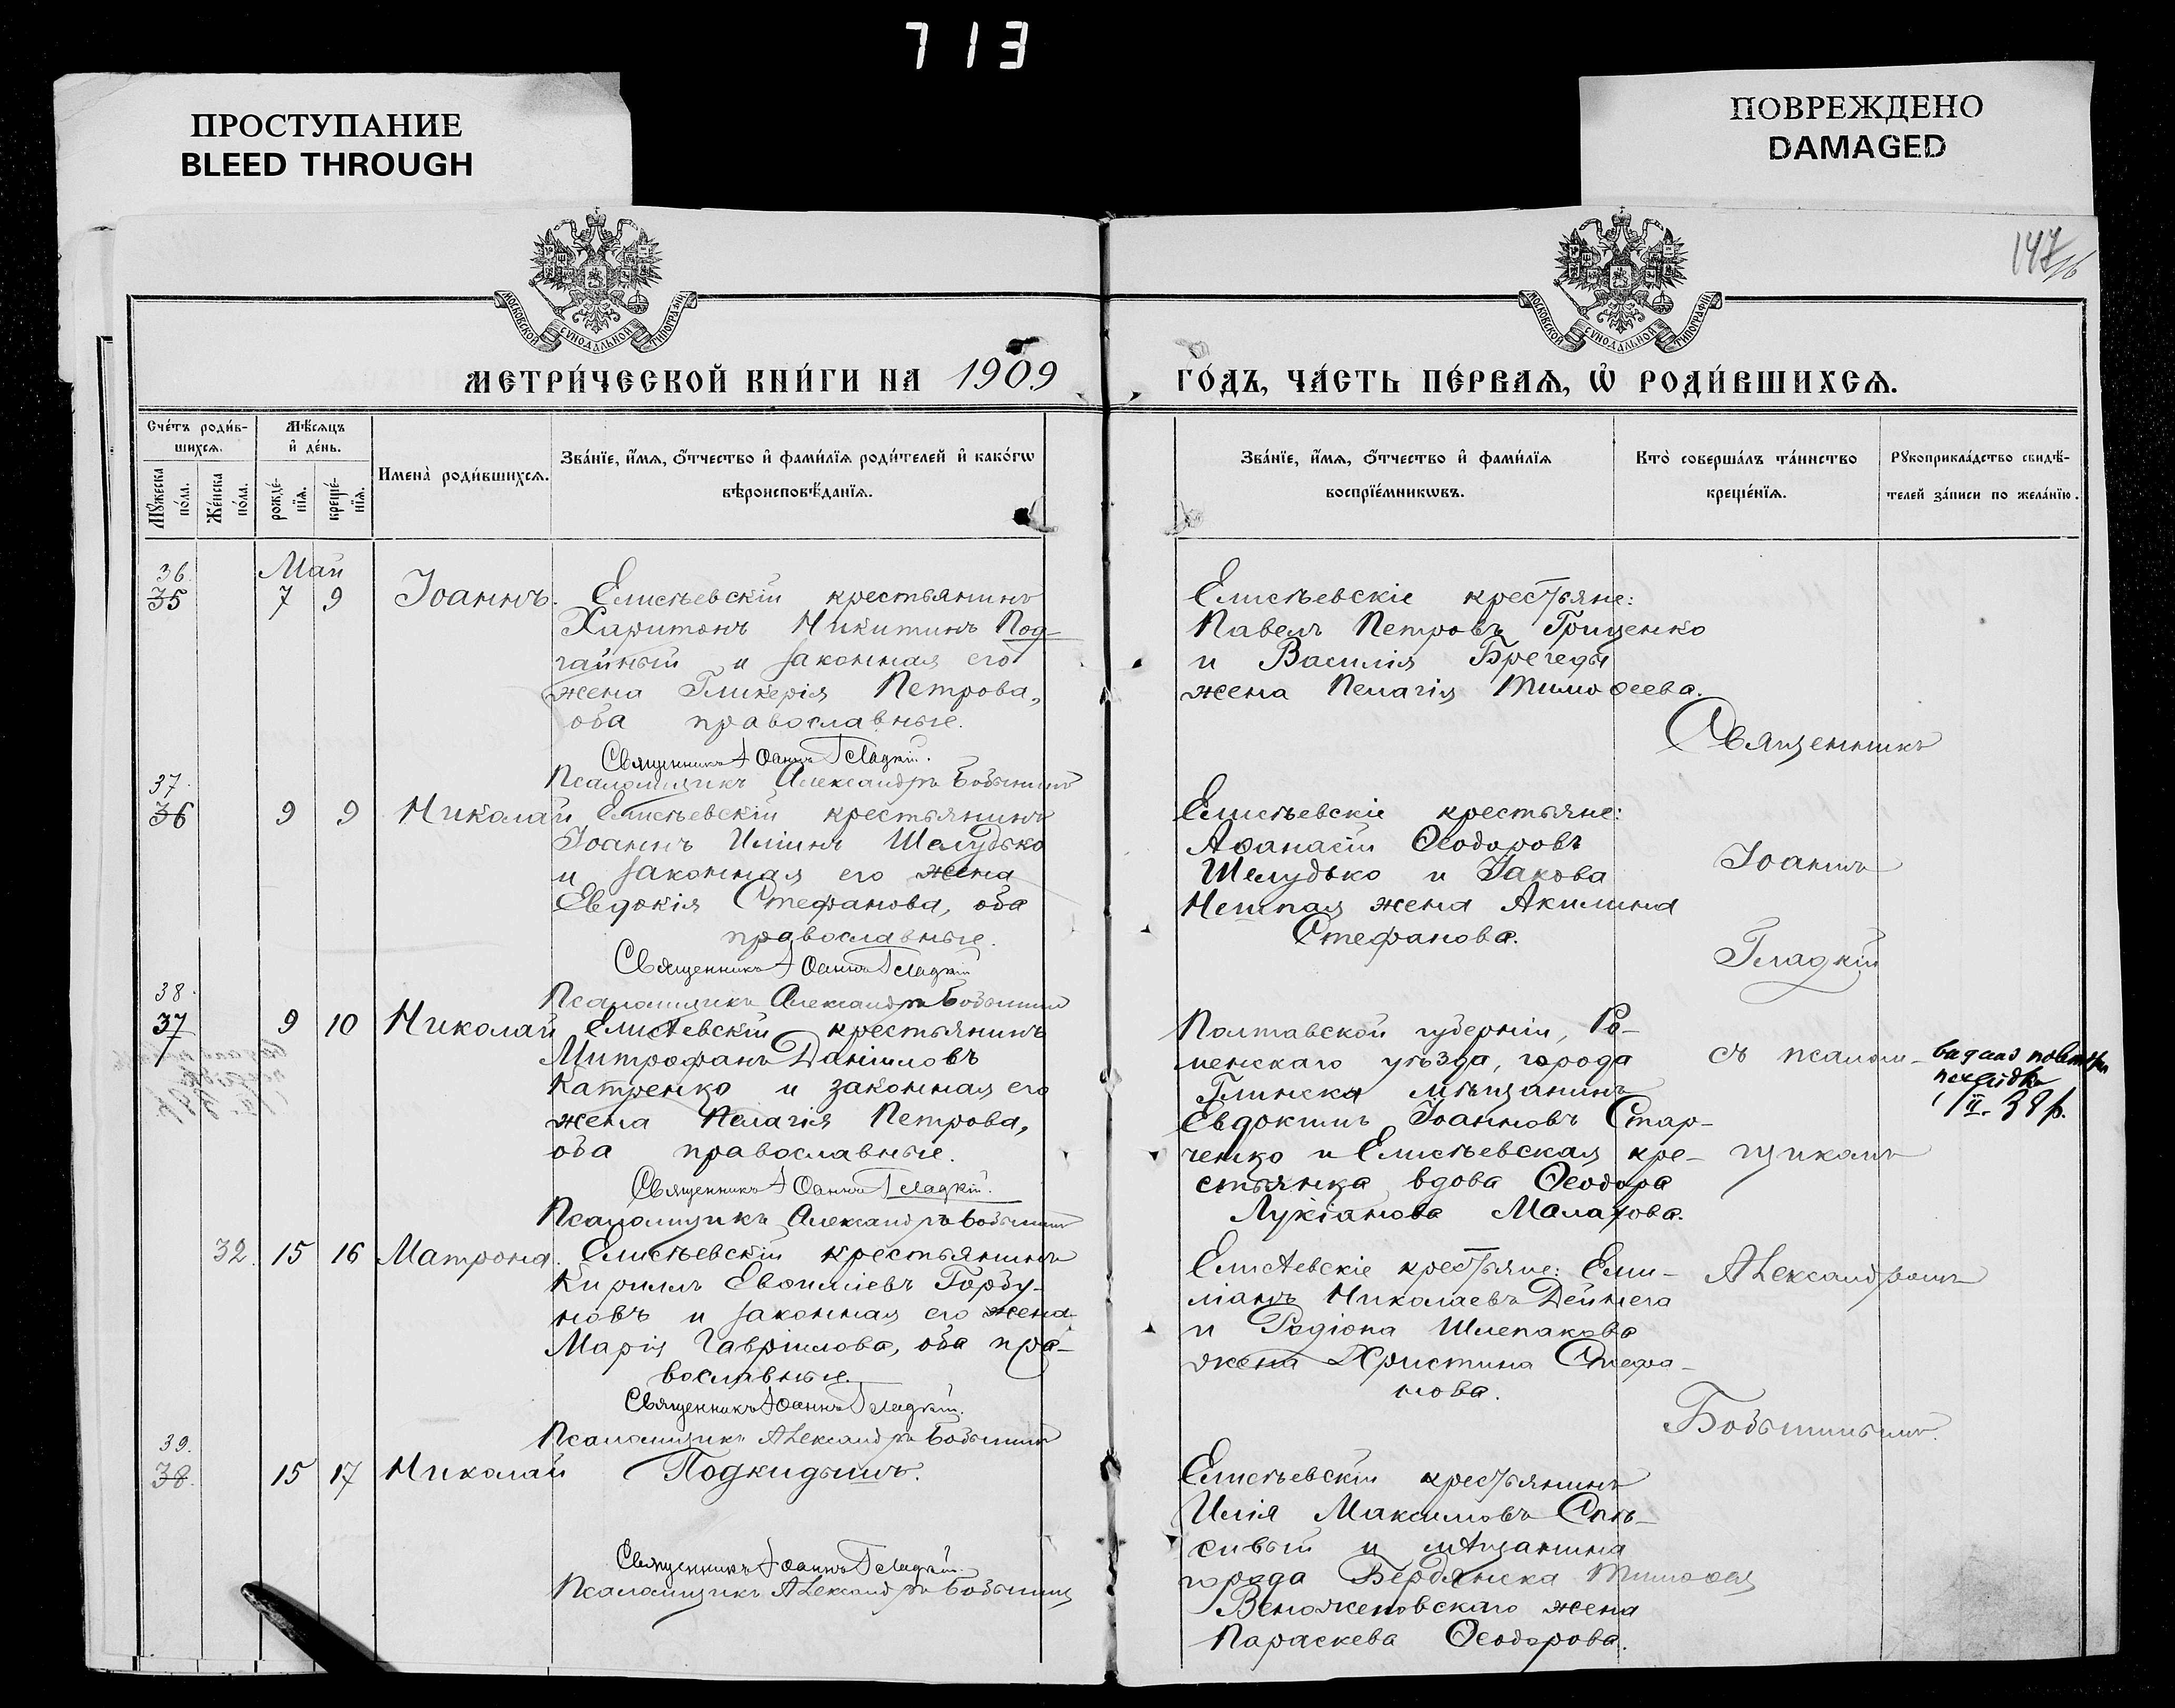 713
ПРОСТУПАНИЕ
BLEED THROUGH
ПОВРЕЖДЕНО
DAMAGED
147
МОСКОВСКОЙ СУНОДАЛЬНОЙ ТИПОГРАФІИ
МОСКОВСКОЙ СУНОДАЛЬНОЙ ТИПОГРАФІИ
МЕТРИ́ЧЕСКОЙ КНИ́ГИ НА 1909
ГО́ДЪ, ЧА́СТЬ ПЕ́РВАѦ, Ѡ҆ РОДИ́ВШИХСѦ.
Сче́тъ роди́в-
шихсѧ.
Мꙋ́жеска по́ла.
Же́нска по́ла.
Мѣ́сѧцъ
и҆ де́нь.
рожде́-
нїѧ.
креще́-
нїѧ.
Имена̀ роди́вшихсѧ.
Зва́нїе, и҆́мѧ, ѻ҆́тчество и҆ фами́лїѧ роди́телей и҆ како́гѡ
вѣроисповѣ́данїѧ.
Зва́нїе, и҆́мѧ, ѻ҆́тчество и҆ фами́лїѧ
воспрїе́мникѡвъ.
Кто̀ соверша́лъ та́инство
креще́нїѧ.
Рꙋкоприкла́дство свидѣ́-
телей за́писи по жела́нїю.
Май
36.
35 7 9 Іоаннъ. Елисѣевскій крестьянинъ
Харитонъ Никитинъ Под-
гайный и законная его
жена Гликерія Петрова,
оба православные.
Священникъ Іоаннъ Гладкій.
Псаломщикъ Александръ
Елисѣевскіе крестьяне:
Павелъ Петровъ Гриценко
и Василія Брегеды
жена Пелагія Тимоѳеева.
Священникъ
37.
36 9 9 Николай Елисѣевскій крестьянинъ
Іоаннъ Иліинъ Шелудько
и законная его жена
Евдокія Стефанова, оба
православные.
Священникъ Іоаннъ Гладкій
Псаломщикъ Александръ
Елисѣевскіе крестьяне:
Аѳанасій Ѳеодоровъ
Шелудько и Іакова
жена Акилина
Стефанова.
Іоаннъ
Гладкій
38.
37 9 10 Николай Елисѣевскій крестьянинъ
Митрофанъ Даніиловъ
Катренко и законная его
жена Пелагія Петрова,
оба православные.
Священникъ Іоаннъ Гладкій.
Псаломщикъ Александръ
Полтавской губерніи, Ро-
менскаго уѣзда, города
Глинска мѣщанинъ
Евдокимъ Іоанновъ Стар-
ченко и Елисѣевская кре-
стьянка вдова Ѳеодора
Лукіанова Малахова.
съ псалом-
щикомъ
32. 15 16 Матрона. Елисѣевскій крестьянинъ
Кириллъ Евѳиміевъ Горбу-
новъ и законная его жена
Марія Гавріилова, оба пра-
вославные.
Священникъ Іоаннъ Гладкій.
Псаломщикъ Александръ
Елисѣевскіе крестьяне: Еми-
ліанъ Николаевъ Дейнега
и Родіона Шлепакова
жена Христина Стефа-
нова.
Александромъ
39.
38. 15 17 Николай Подкидышъ.
Священникъ Іоаннъ Гладкій.
Псаломщикъ Александръ
Елисѣевскій крестьянинъ
Илія Максимовъ Спѣ-
сивый и мѣщанина
города Бердянска Тимоѳея
жена
Параскева Ѳеодорова.